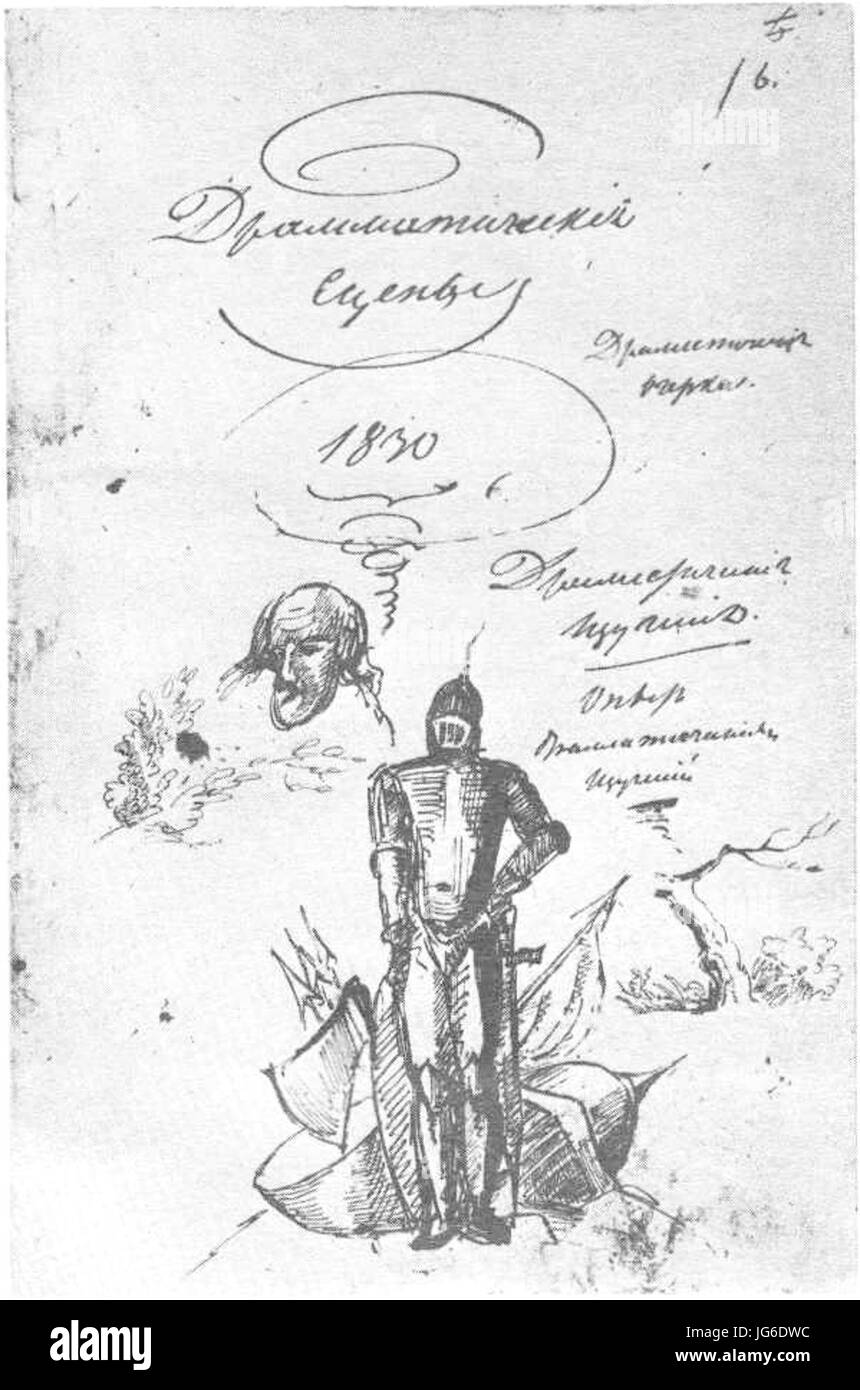 6.
Драмматическій
Сцены
1830
Драматическія
очерки.
Драматическія
изученія.
Опыт
драмматическихъ
изученій
alamy
alamy
Image ID: JG6DWC
www.alamy.com